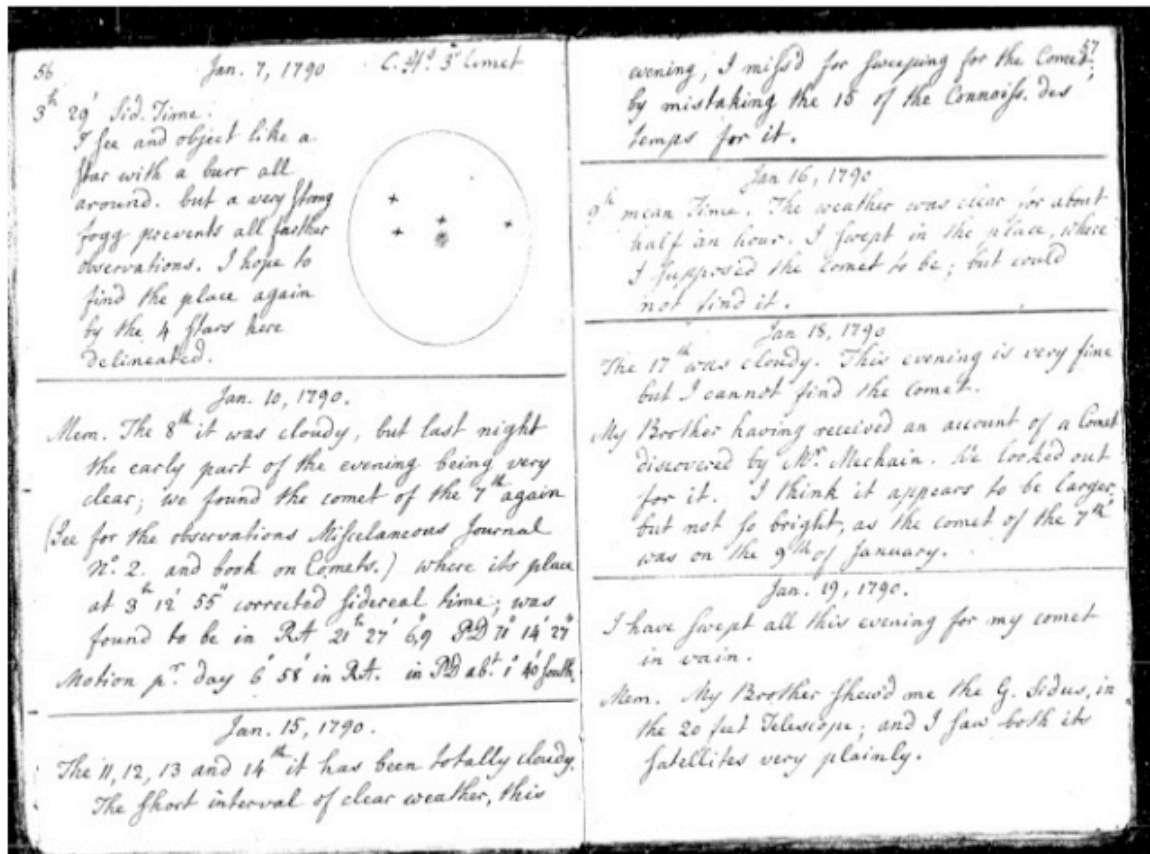 56 Jan. 7, 1790 C. H's. 3d Comet
3h 29' Sid. Time.
I see and object like a
star with a burr all
around. but a very strong
fogg prevents all further
observations. I hope to
find the place again
by the 4 stars here
delineated.
Jan. 10, 1790.
Mem. The 8th it was cloudy, but last night
the early part of the evening being very
clear; we found the comet of the 7th again
(See for the observations Miscelaneous Journal
No. 2. and book on Comets.) where its place
at 3h 12' 55" corrected sidereal time; was
found to be in RA 21h 27' 6",9 PD 71° 14' 27"
Motion pr. day 6° 58' in RA. in PD abt. 1° 40' South.
Jan. 15, 1790.
The 11, 12, 13 and 14th it has been totally cloudy.
The short interval of clear weather, this
57
evening, I miss'd for sweeping for the Comet;
by mistaking the 15 of the Connoiss. des
temps for it.
Jan 16, 1790
9h mean Time. The weather was clear for about
half an hour. I swept in the place, where
I supposed the comet to be; but could
not find it.
Jan 18, 1790
The 17th was cloudy. This evening is very fine
but I cannot find the comet.
My Brother having received an account of a Comet
discovered by Mr. Mechain. We looked out
for it. I think it appears to be larger,
but not so bright, as the comet of the 7th
was on the 9th of January.
Jan. 19, 1790.
I have swept all this evening for my comet
in vain.
Mem. My Brother shew'd me the G. Sidus, in
the 20 feet Telescope; and I saw both its
satellites very plainly.